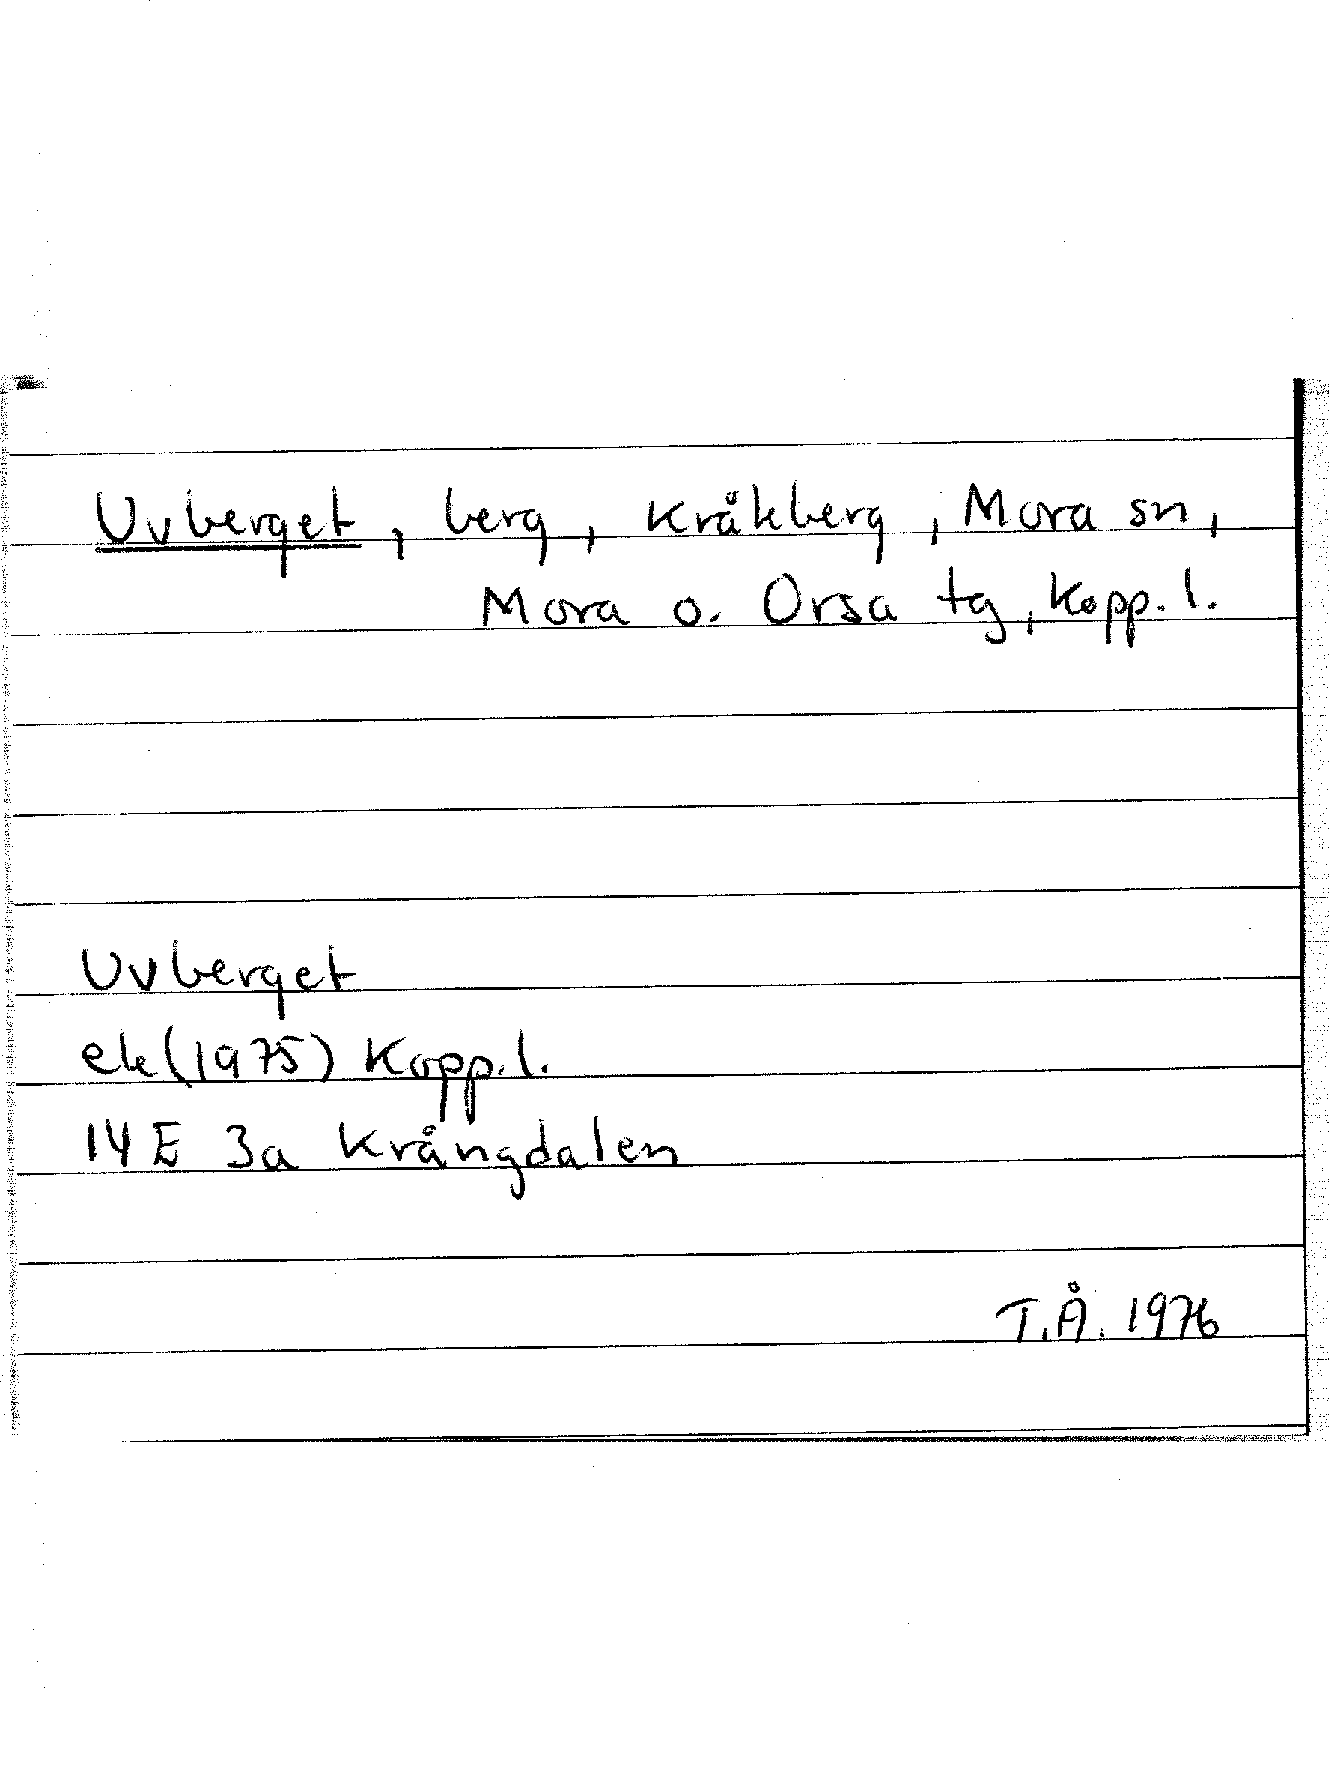 Uvberget, berg, Kråkberg, Mora sn,
Mora o. Orsa tg, Kopp. l.
Uvberget
ek (1975) Kopp. l.
14 E 3a Krångdalen
T.Å. 1976